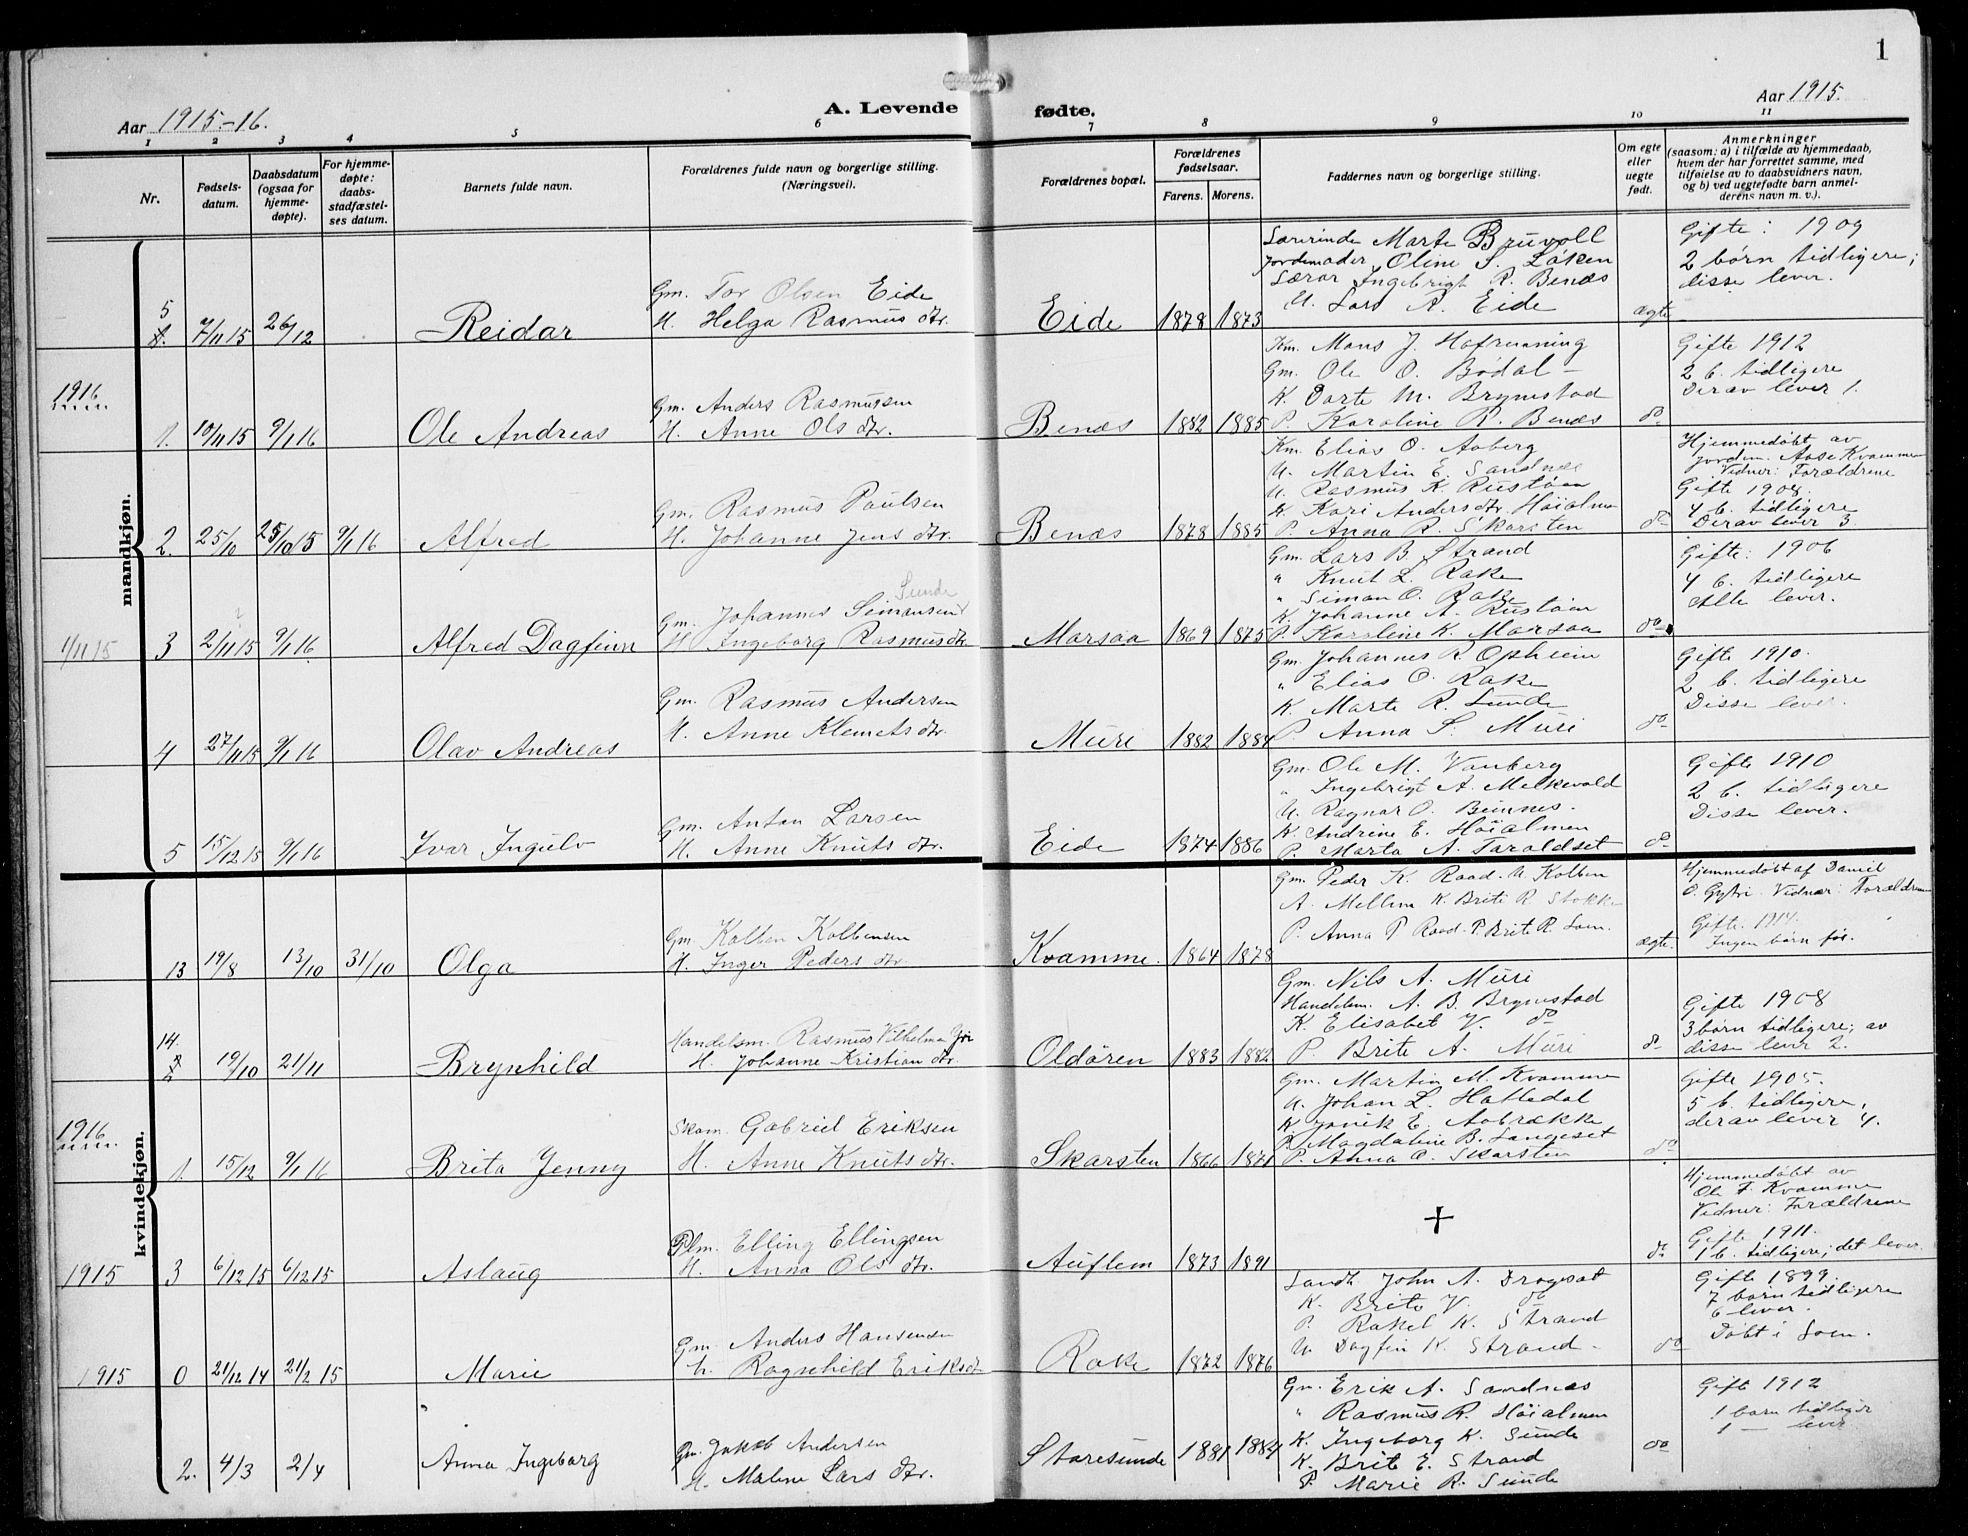 1
Aar 1915-16.
A. Levende
fødte.
Aar 1915.
1 2 3 4 5 6 7 8 9 10 11
Nr.
Fødsels-
datum.
Daabsdatum
(ogsaa for
hjemme-
døpte).
For hjemme-
døpte:
daabs-
stadfæstel-
ses datum.
Barnets fulde navn.
Forældrenes fulde navn og borgerlige stilling.
(Næringsvei).
Forældrenes bopæl.
Forældrenes
fødselsaar.
Farens. Morens.
Faddernes navn og borgerlige stilling.
Om egte
eller
uegte
født.
Anmerkninger
(saasom: a) i tilfælde av hjemmedaab,
hvem der har forrettet samme, med
tilføielse av to daabsvidners navn,
og b) ved uegtefødte barn anmel-
derens navn m. v.).
mandkjøn.
5
7/11 15 26/12 Reidar
Gm. Tor Olsen Eide
H. Helga Rasmus dtr.
Eide 1878 1873
Lærerinde Marte Bruvoll
Jordemoder Oline S. Løken
Lærar Ingebrigt R. Benæs
U. Lars R. Eide
ægte
Gifte: 1909
2 børn tidligere;
disse lever.
1916
1. 10/11 15 9/1 16 Ole Andreas
Gm. Anders Rasmussen
H. Anne Ols dtr.
Benæs 1882 1885
Km. Mons J. Hafrenning
Gm. Ole O. Bødal -
K. Dorte M. Brynestad
P. Karoline R. Benæs
do
Gifte 1912
2 b. tidligere
Derav lever 1.
2. 25/10 25/10 15 9/1 16 Alfred
Gm. Rasmus Paulsen
H. Johanne Jens dtr.
Benæs 1878 1885
Km. Elias O. Aaberg
U. Martin E. Sandnes
U. Rasmus K. Rustøen
K. Kari Anders dtr. Høialmen
P. Anna R. Skarsten
do
Hjemmedøbt av
Jordm. Aase Kvammen
Vidner: Forældrene
Gifte 1908.
4 b. tidligere
Derav lever 3.
1/11 15
3 2/11 15 9/1 16 Alfred Dagfinn
Sunde
Gm. Johannes Simonsen
H. Ingeborg Rasmus dtr
Marsaa 1869 1875
Gm. Lars B. Strand
" Knut L. Rake
" Simon O. Rake
K. Johanne A. Rustøen
P. Karoline K. Marsaa
do
Gifte: 1906
4 b. tidligere
Alle lever.
4 27/11 15 9/1 16 Olav Andreas
Gm. Rasmus Andersen
H. Anne Klemets dtr.
Muri 1882 1884
Gm. Johannes R. Opheim
" Elias O. Rake
K. Marte R. Sunde
P. Anna S. Muri
do
Gifte 1910.
2 b. tidligere
Disse lever.
5 15/12 15 9/1 16 Ivar Ingulv
Gm. Anton Larsen
H. Anne Knuts dtr.
Eide 1874 1886
Gm. Ole M. Vanberg
" Ingebrigt A. Melkevold
U. Ragnar O. Beinnes.
K. Andrine E. Høialmen
P. Marta A. Taraldset
do
Gifte 1910
2 b. tidligere
Disse lever.
kvindekjøn.
13 19/8 13/10 31/10 Olga
Gm Kolben Kolbensen
H. Inger Peders dtr.
Kvamme. 1864 1878
Gm. Peder K. Raad. U Kolben
A. Mellem K. Brite R Stokke
P. Anna P Raad. P. Brite R. Loen.
ægte.
Hjemmedøbt af Daniel
O. Gytri. Vidner: Forældrene
Gifte. 1914.
Ingen børn før.
14.
19/10 21/11 Brynhild
Handelsm. Rasmus Vilhelm
H. Johanne Kristian dtr.
Oldøren 1883 1882
Gm. Nils A. Muri
Handelsm. A. B. Brynestad
K. Elisabet V. do
P. Brite A. Muri
do
Gifte 1908
3 børn tidligere; av
disse lever 2.
1916
1. 15/12 9/1 16 Brita Jenny
Skom. Gabriel Eriksen
H. Anne Knuts dtr.
Skarsten 1866 1871
Gm. Martin M. Kvamme
U. Johan L. Hattedal
K. Janik E. Aabrække
P. Magdaline B. Langeset
P. Anna O. Skarsten
do
Gifte 1905.
5 b. tidligere,
derav lever 4.
1915 3 6/12 15 6/12 15 Aslaug
Plm. Elling Ellingsen
H. Anna Ols dtr.
Auflem 1873 1891
+
do
Hjemmedøbt av
Ole F. Kvamme
Vidner: Forældrene
Gifte 1911.
1 b. tidligere; det lever.
1915 0 21/12 14 21/2 15 Marie
Gm. Anders Hansensen
H. Ragnhild Eriksdt
Rake 1872 1876
Landh. John A. Dragesæt
K. Brite V. do
P. Rakel K. Strand
U Dagfin K. Strand -
do
Gifte 1899.
7 børn tidligere
6 lever.
Døbt i Loen.
2. 4/3 2/4 Anna Ingeborg
Gm. Jakob Andersen
H. Malene Lars dtr.
Storesunde 1881 1884
Gm. Erik A. Sandnæs
" Rasmus R. Høialmen
K. Ingeborg K. Sunde
K. Brit E. Strand
P. Marie R. Sunde
do
Gift 1912
1 barn tidliger
1 — lever